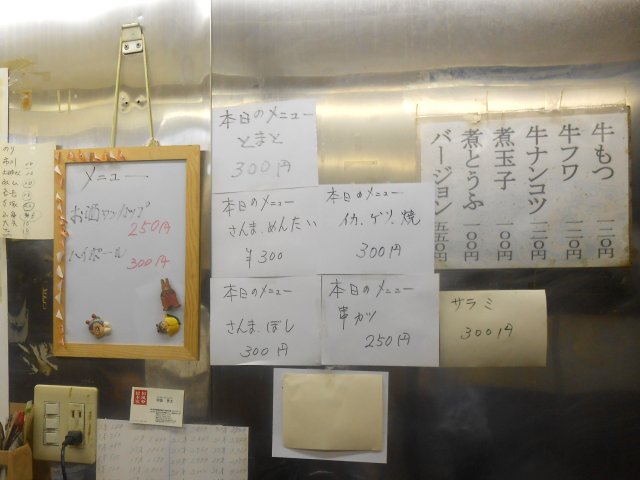 メニュー
お酒ワンカップ
250円
ハイボール
300円
本日のメニュー
とまと
300円
本日のメニュー
さんま、めんたい
¥300
本日のメニュー
イカ、ゲソ、焼
300円
本日のメニュー
さんま、ぼし
300円
本日のメニュー
串カツ
250円
サラミ
300円
牛もつ 一二〇円
牛フワ 一二〇円
牛ナンコツ 一二〇円
煮玉子 一〇〇円
煮とうふ 一〇〇円
バージョン 五五〇円